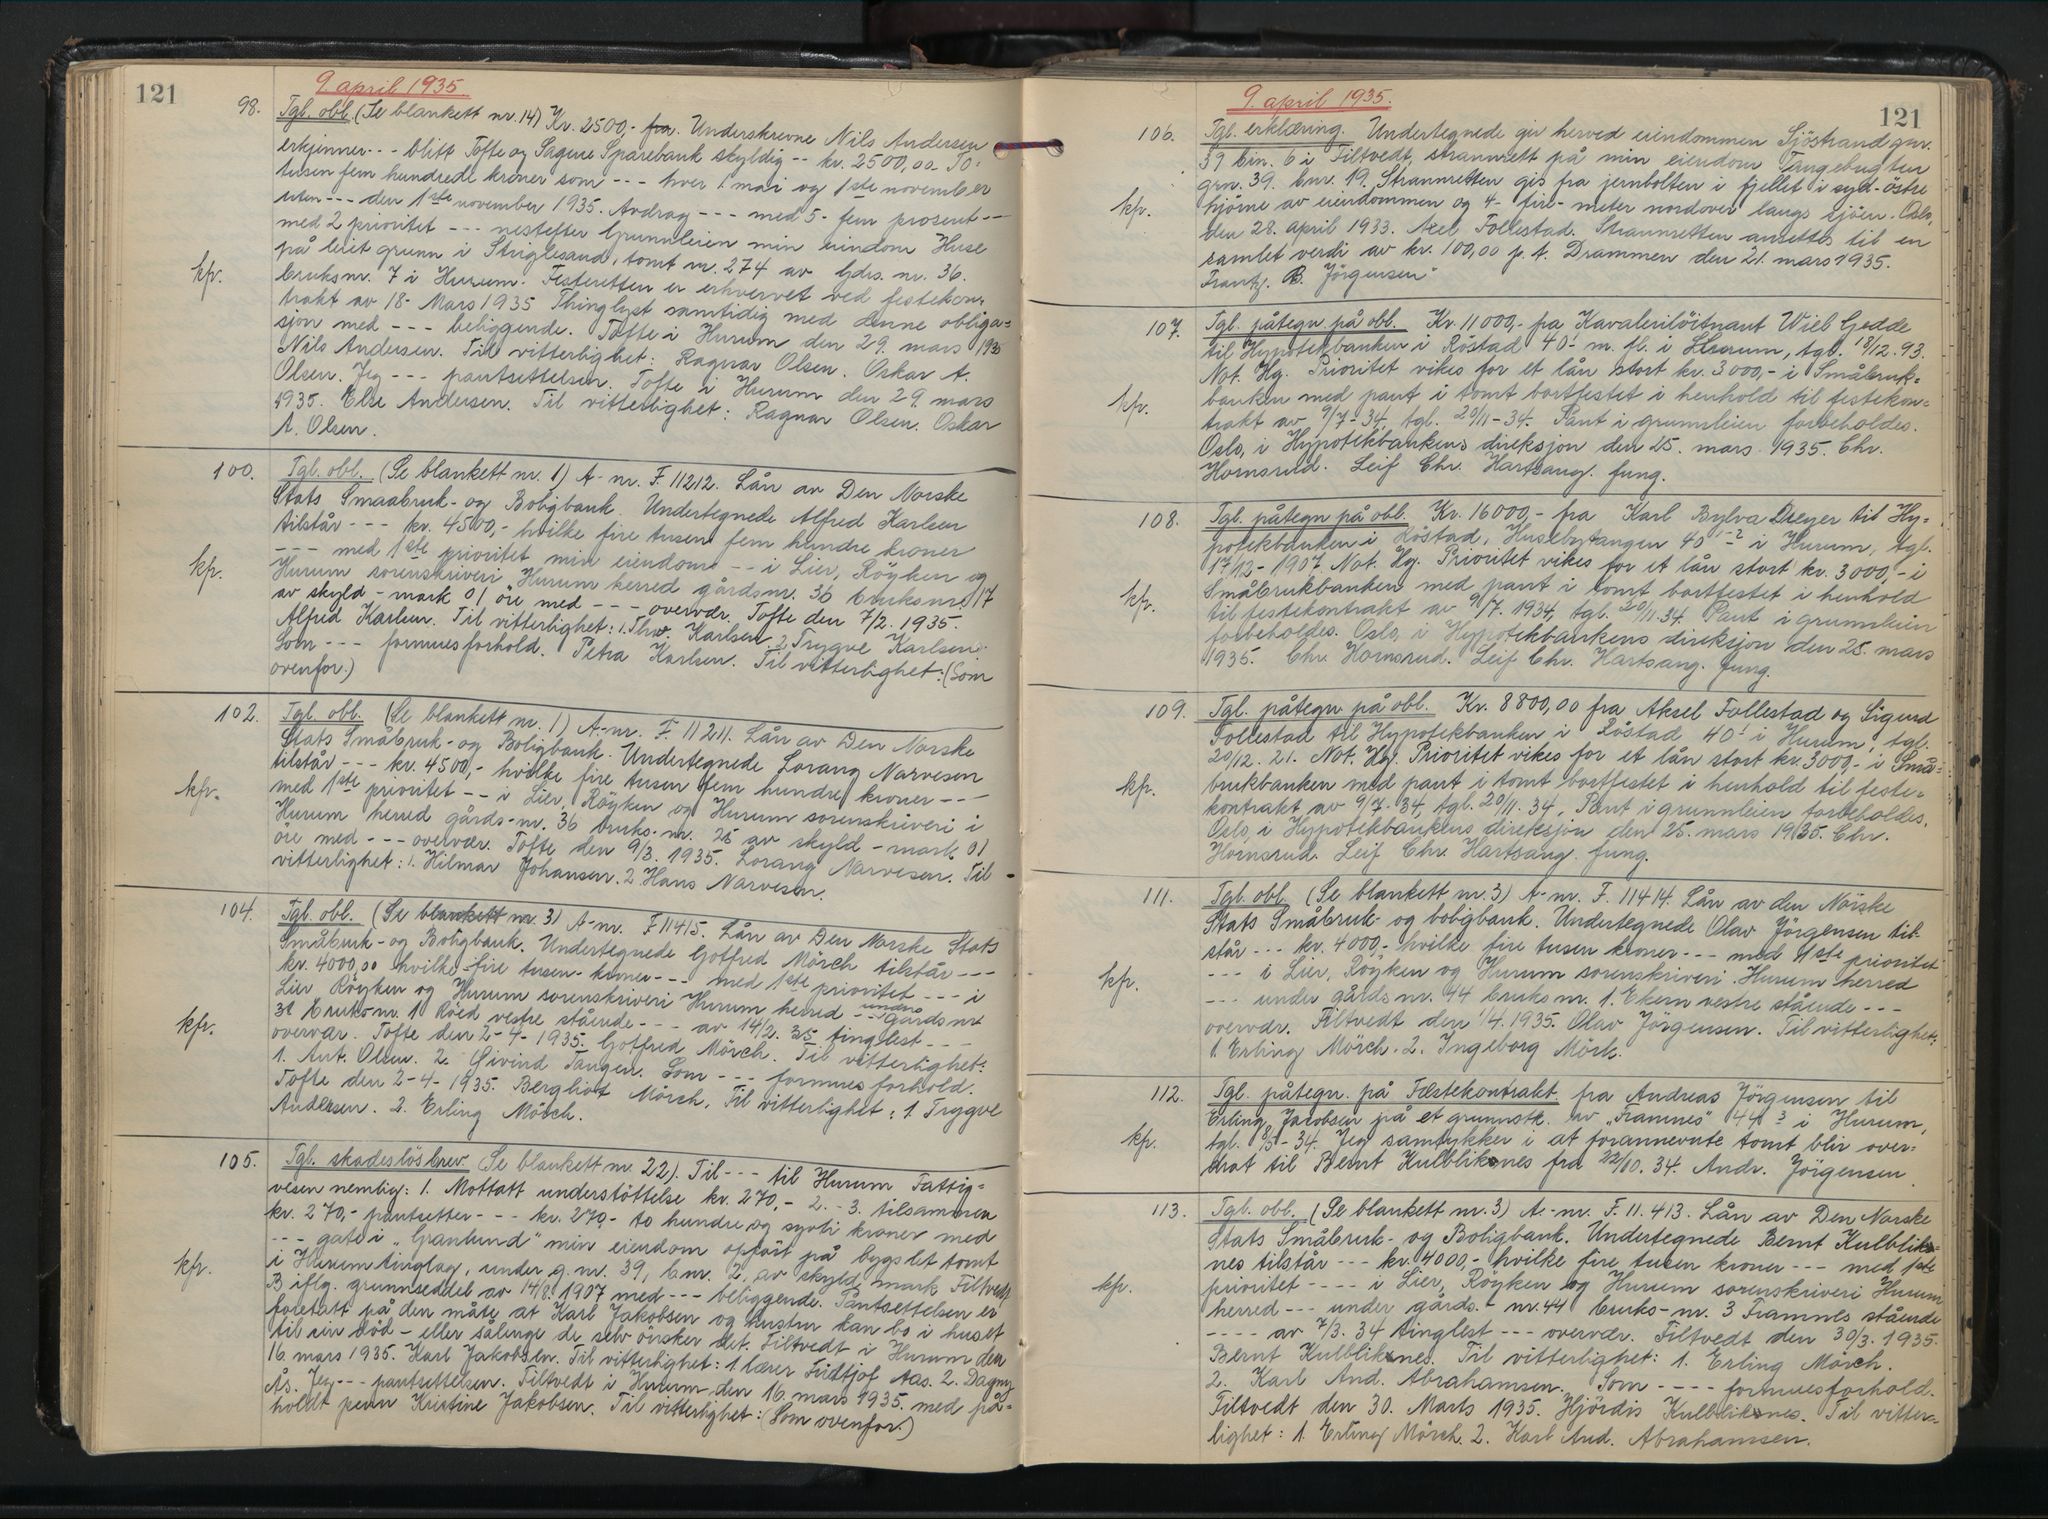 121
9. april 1935.
98. Tgl. obl. (Se blankett nr. 14) Kr. 2500,- fra. Underskrevne Nils Andersen
erkjenner --- blitt Tofte og Sagene Sparebank skyldig -- kr. 2500,00 To-
tusen fem hundrede kroner som --- hver 1. mai og 1ste november
uten --- den 1ste november 1935. Avdrag --- med 5- fem prosent --
med 2 prioritet --- nestefter Grunnleien min eiendom Huse
på leiet grunn i Striglesand, tomt nr. 274 av Gårds. nr. 36.
kfr. bruksnr. 7 i Hurum. Festeretten er erhvervet ved festekon-
trakt av 18- Mars 1935 Thinglyst samtidig med denne obliga-
sjon med --- beliggende. Tofte i Hurum den 29. mars 1935
Nils Andersen. Til vitterlighet: Ragnar Olsen. Oskar A.
Olsen. Jeg --- pantsettelsen. Tofte i Hurum den 29. mars
1935. Else Andersen. Til vitterlighet: Ragnar Olsen. Oskar
A. Olsen.
100. Tgl. obl. (Se blankett nr. 1) A- nr. F. 11212. Lån av Den Norske
Stats Smaabruk- og Boligbank. Undertegnede Alfred Karlsen
tilstår --- kr. 4500,- hvilke fire tusen fem hundre kroner
--- med 1ste prioritet min eiendom -- i Lier, Röyken og
kfr. Hurum sorenskriveri Hurum herred gårdsnr. 36 bruksnr. 17
av skyld - mark 01 öre med --- overvær. Tofte den 7/2. 1935.
Alfred Karlsen. Til vitterlighet: 1. Thv. Karlsen. 2 Trygve Karlsen.
Som --- formuesforhold. Petra Karlsen. Til vitterlighet: (Som
ovenfor.)
102. Tgl. obl. (Se blankett nr. 1) A-nr. F. 11211. Lån av Den Norske
Stats Småbruk- og Boligbank. Undertegnede Lorang Narvesen
tilstår --- kr. 4500,- hvilke fire tusen fem hundre kroner ---
kfr. med 1ste prioritet -- i Lier, Röyken og Hurum sorenskriveri i
Hurum herred gårds-nr. 36 bruks-nr. 25 av skyld - mark 01
öre med --- overvær. Tofte den 9/3. 1935. Lorang Narvesen. Til
vitterlighet: 1. Hilmar Johansen. 2 Hans Narvesen.
104. Tgl. obl. (Se blankett nr. 3) A-nr. F 11415. Lån av Den Norske Stats
Småbruk- og Boligbank. Undertegnede Gotfred Mörch tilstår ---
kr. 4000,00 hvilke fire tusen- kroner --- med 1ste prioritet --- i
Lier Röyken og Hurum sorenskriveri Hurum herred -- under gårds nr
kfr. 38 bruks-nr. 1 Röed vestre stående --- av 14/2. 35 tinglest ---
overvær. Tofte den 2-4-1935. Gotfred Mörch. Til vitterlighet:
1. Ant. Olsen. 2. Øivind Tangen. Som --- formuesforhold.
Tofte den 2-4-1935. Bergliot Mörch. Til vitterlighet: 1. Trygve
Andersen. 2. Erling Mörch.
105. Tgl. skadeslösbrev (Se blankett nr. 22). Til --- til Hurum Fattig-
vesen nemlig: 1. Mottatt understöttelse kr. 270,- 2. - 3. tilsammen
kr. 270,- pantsetter --- kr. 270,- to hundre og sytti kroner med
--- gate i „Granlund" min eiendom opfört på bygslet tomt
i Hurum tinglag, under g.nr. 39, b.nr. 2, av skyld mark Filtvedt
kfr. B iflg. grunnseddel av 14/8. 1907 med --- beliggende. Pantsettelsen er
foretatt på den måte at Karl Jakobsen og hustru kan bo i huset
til sin död - eller sålenge de selv önsker det. Filtvedt i Hurum den
16 mars 1935. Karl Jakobsen. Til vitterlighet: 1 lærer Fridtjof Aas. 2. Dagny
Ås. Jeg --- pantsettelsen. Filtvedt i Hurum den 16 mars 1935. med på-
holdt penn Kristine Jakobsen. Til vitterlighet: (Som ovenfor.)
9. april 1935.
121
106. Tgl. erklæring. Undertegnede gir herved eiendommen Sjöstrand gnr.
39 bnr. 6 i Filtvedt, strannrett på min eiendom Tangebugten
grn. 39. bnr. 19. Strannretten gis fra jernbolten i fjellet i syd-östre
kfr. hjörne av eiendommen og 4- fire- meter nordover langs sjöen. Oslo,
den 28. april 1933. Axel Follestad. Strannretten ansettes til en
samlet verdi av kr. 100,00 p.t. Drammen den 21. mars 1935.
Frantz. B. Jörgensen
107. Tgl. påtegn. på obl. Kr. 11000,- fra Kavaleriløitnant Wiel Gedde
til Hypotekbanken i Röstad 40 1 m. fl. i Hurum, tgl. 18/12. 93.
Not. Hg. Prioritet vikes for et lån stort kr. 3000,- i Småbruk-
kfr. banken med pant i tomt bortfestet i henhold til festekon-
trakt av 9/7-34, tgl. 20/11-34. Pant i grunnleien forbeholdes.
Oslo, i Hypotekbankens direksjon den 25. mars 1935. Chr.
Hornsrud. Leif Chr. Hartsang. fung.
108. Tgl. påtegn på obl. Kr. 16000,- fra Karl Bylva Dreyer til Hy-
potekbanken i Röstad, Husebytangen 40 1-2 i Hurum, tgl.
17/12-1907. Not. Hg. Prioritet vikes for et lån stort kr. 3000,- i
kfr. Småbrukbanken med pant i tomt bortfestet i henhold
til festekontrakt av 9/7. 1934, tgl. 20/11.34. Pant i grunnleien
forbeholdes. Oslo, i Hypotekbankens direksjon den 25. mars
1935. Chr. Hornsrud. Leif Chr. Hartsang. fung.
109. Tgl. påtegn på obl. Kr. 8800,00 fra Aksel Follestad og Sigurd
Follestad til Hypotekbanken i Röstad 40 1 i Hurum, tgl.
20/12. 21. Not. Hg. Prioritet vikes for et lån stort kr. 3000,- i Små-
kfr. brukbanken med pant i tomt bortfestet i henhold til feste-
kontrakt av 9/7. 34, tgl. 20/11. 34. Pant i grunnleien forbeholdes.
Oslo, i Hypotekbankens direksjon den 25. mars 1935. Chr.
Hornsrud. Leif Chr. Hartsang. fung.
111. Tgl. obl. (Se blankett nr. 3) A-nr. F. 11414. Lån av den Nörske
Stats Småbruk- og boligbank. Undertegnede Olav Jörgensen til-
står --- kr. 4000,- hvilke fire tusen kroner --- med 1ste prioritet
kfr. --- i Lier, Röyken og Hurum sorenskriveri Hurum herred
--- under gårds nr. 44 bruks nr. 1. Ekern vestre stående ---
overvær. Filtvedt den 1/4. 1935. Olav Jörgensen. Til vitterlighet:
1. Erling Mörch. 2. Ingeborg Mörk.
112. Tgl. påtegn. på Fæstekontrakt. fra Andreas Jörgensen til
Erling Jacobsen på et grunnstk. av „Framnes" 44 3 i Hurum,
kfr. tgl. 8/5-34. Jeg samtykker i at forannevnte tomt blir over-
drat til Bernt Kulbliksnes fra 22/10. 34. Andr. Jörgensen.
113. Tgl. obl. (Se blankett nr. 3) A-nr. F. 11.413. Lån av Den Norske
Stats Småbruk- og Boligbank. Undertegnede Bernt Kulbliks-
nes tilstår --- kr. 4000,- hvilke fire tusen kroner --- med 1ste
kfr. prioritet ---- i Lier, Röyken og Hurum sorenskriveri Hurum
herred --- under gårds- nr. 44 bruks-nr. 3 Framnes stående
---- av 7/3. 34 tinglest --- overvær. Filtvedt den 30/3. 1935.
Bernt Kulbliksnes. Til vitterlighet: 1. Erling Mörch.
2. Karl And. Abrahamsen. Som ---- formuesforhold.
Filtvedt den 30. Marts 1935. Hjördis Kulbliksnes. Til vitter-
lighet: 1. Erling Mörch. 2. Karl And. Abrahamsen.